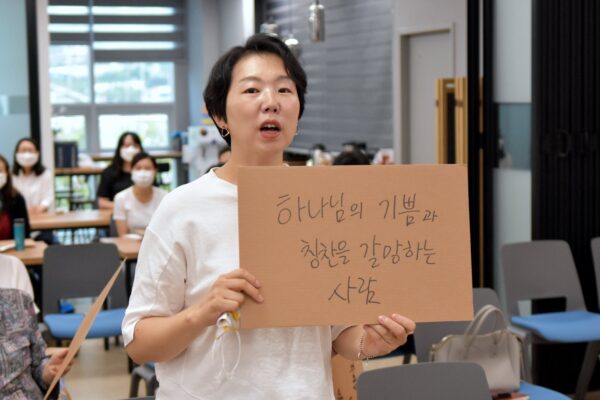 하나님의 기쁨과
칭찬을 갈망하는
사람